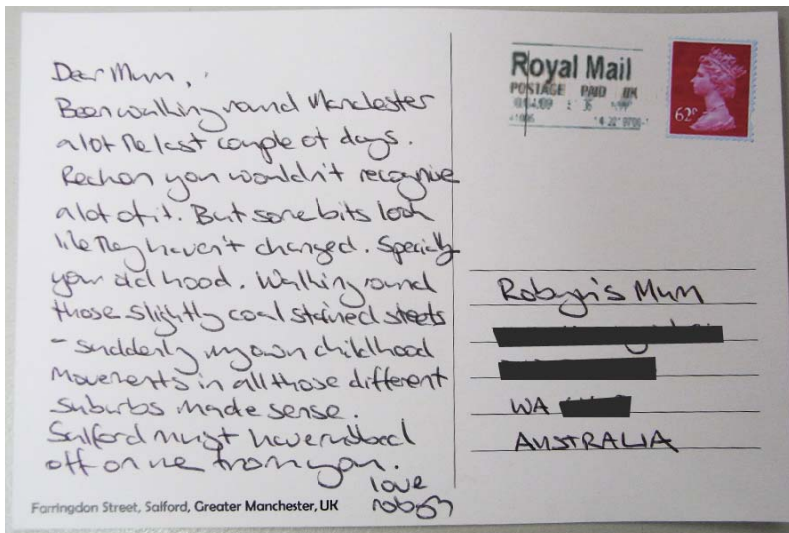 Dear Mum,
Been walking round Manchester
a lot the last couple of days.
Reckon you wouldn't recognise
a lot of it. But some bits look
like they haven't changed. Specially
your old hood. Walking round
those slightly coal stained streets
- suddenly my own childhood
movements in all those different
suburbs made sense.
Salford must have rubbed
off on me from you.
love
robyn
Farringdon Street, Salford, Greater Manchester, UK
Royal Mail
POSTAGE PAID UK
62P
Robyn's Mum
WA
AUSTRALIA